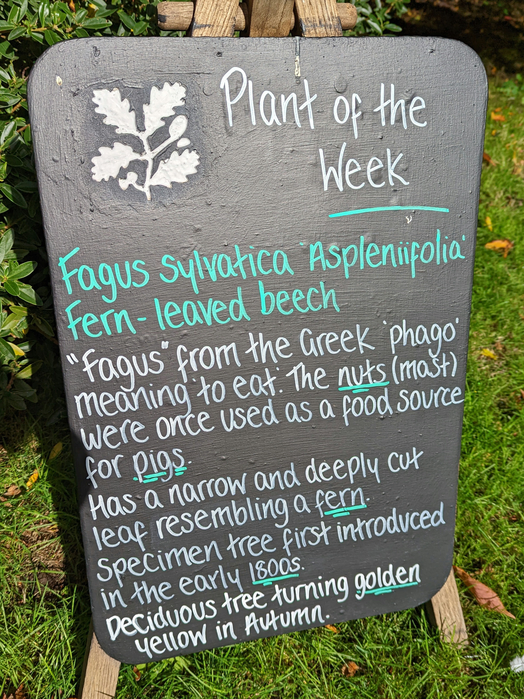 Plant of the
Week
Fagus sylvatica 'Aspleniifolia'
Fern-leaved beech
"Fagus" from the Greek 'phago'
meaning 'to eat'. The nuts (mast)
were once used as a food source
for pigs.
Has a narrow and deeply cut
leaf resembling a fern.
Specimen tree first introduced
in the early 1800s.
Deciduous tree turning golden
yellow in Autumn.